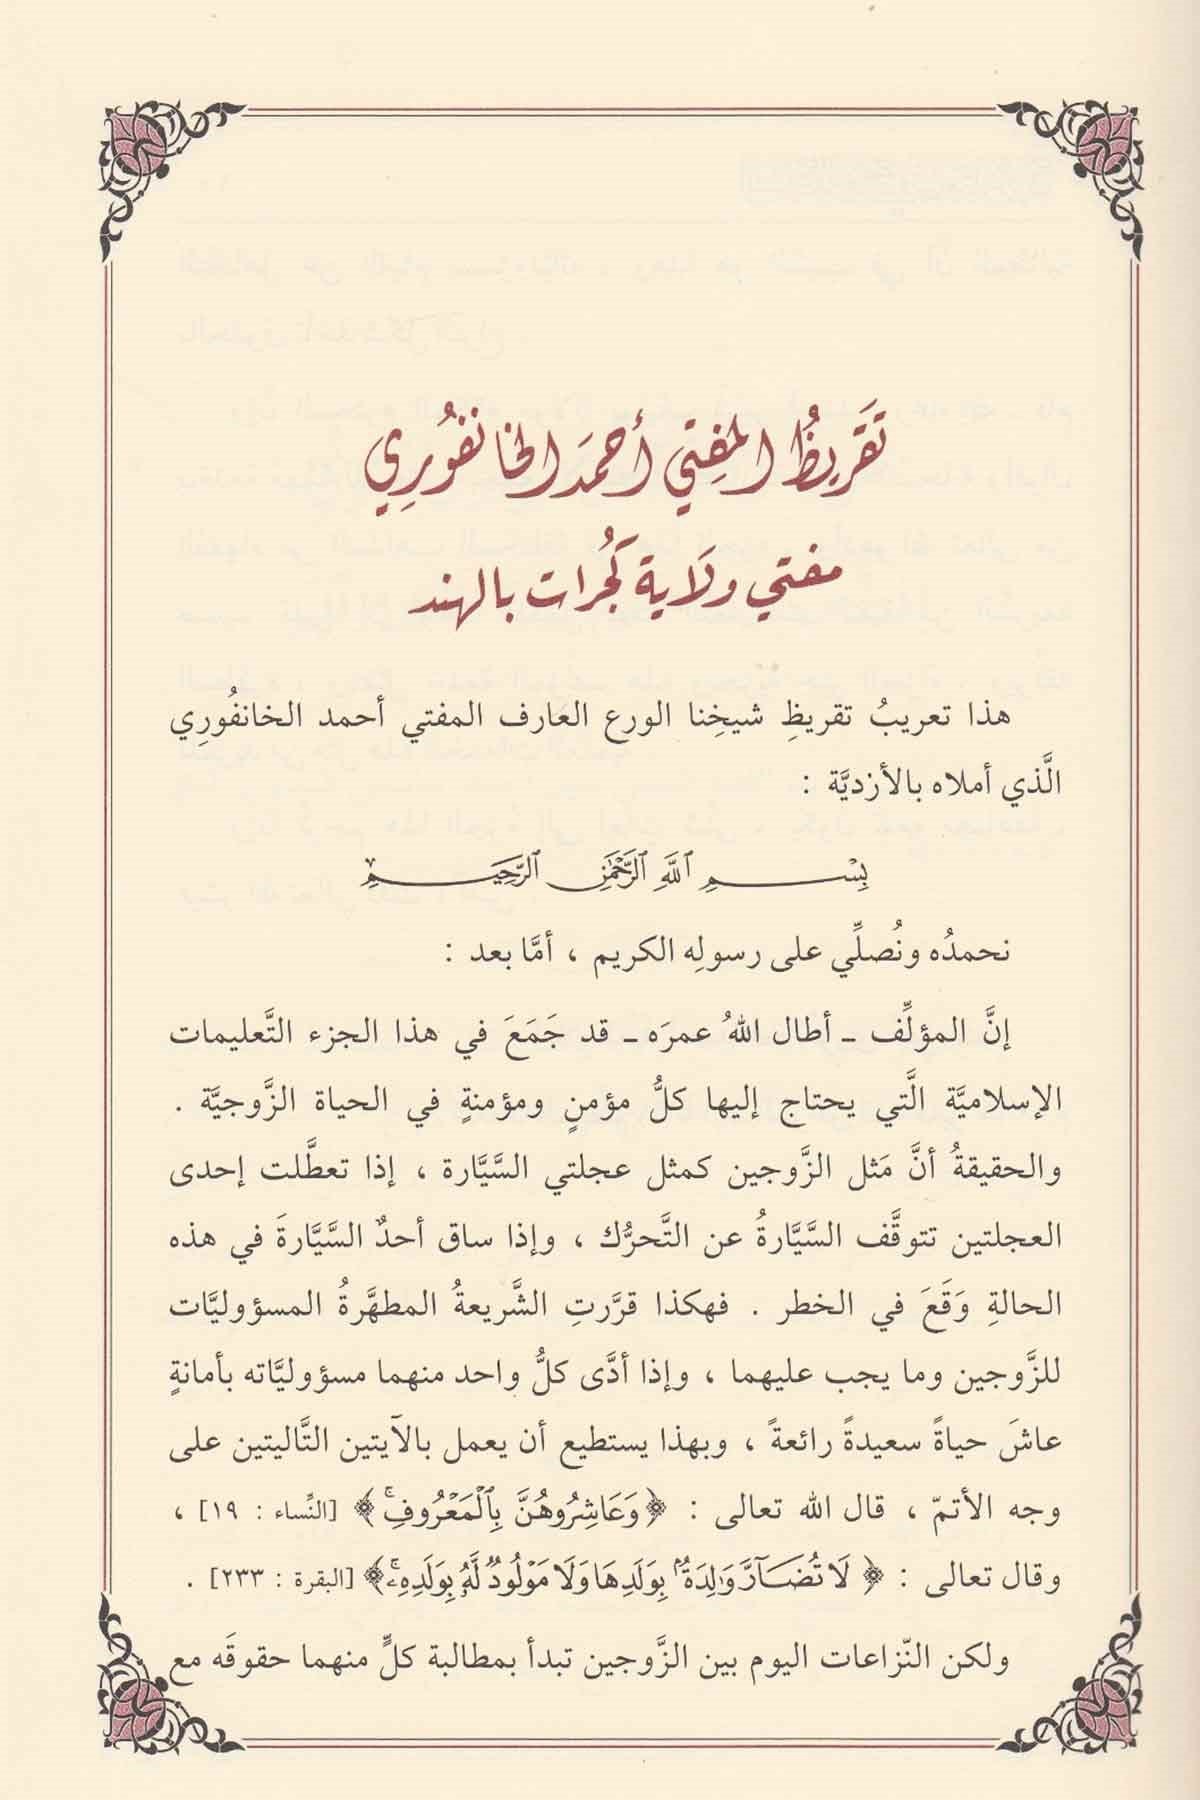 تَقرِيظُ المُفِتي أحمَد الخانفُورِي
مفتي ولَاية كَجُرات بالهند
هذا تعريبُ تقريظِ شيخِنا الورع العارف المفتي أحمد الخانفُورِي
الَّذي أملاه بالأزديَّة :
بِسْمِ ٱللَّهِ ٱلرَّحْمَٰنِ ٱلرَّحِيمِ
نحمدُه ونُصلِّي على رسولِه الكريم ، أمَّا بعد :
إنَّ المؤلِّف ـ أطال اللهُ عمرَه ـ قد جَمَعَ في هذا الجزء التَّعليمات
الإسلاميَّة الَّتي يحتاج إليها كلُّ مؤمنٍ ومؤمنةٍ في الحياة الزَّوجيَّة .
والحقيقةُ أنَّ مَثل الزَّوجين كمثل عجلتي السَّيَّارة ، إذا تعطَّلت إحدى
العجلتين تتوقَّف السَّيَّارةُ عن التَّحرُّك ، وإذا ساق أحدٌ السَّيَّارةَ في هذه
الحالةِ وَقَعَ في الخطر . فهكذا قرَّرتِ الشَّريعةُ المطهَّرةُ المسؤوليَّات
للزَّوجين وما يجب عليهما ، وإذا أدَّى كلُّ واحد منهما مسؤوليَّاته بأمانةٍ
عاشَ حياةً سعيدةً رائعةً ، وبهذا يستطيع أن يعمل بالآيتين التَّاليتين على
وجه الأتمّ ، قال الله تعالى : ﴿ وَعَاشِرُوهُنَّ بِٱلْمَعْرُوفِۚ ﴾ [النِّساء : ١٩] ،
وقال تعالى : ﴿ لَا تُضَآرَّ وَٰلِدَةُۢ بِوَلَدِهَا وَلَا مَوْلُودٌ لَّهُۥ بِوَلَدِهِۦۚ ﴾ [البقرة : ٢٣٣] .
ولكن النّزاعات اليوم بين الزَّوجين تبدأ بمطالبة كلٍّ منهما حقوقَه مع